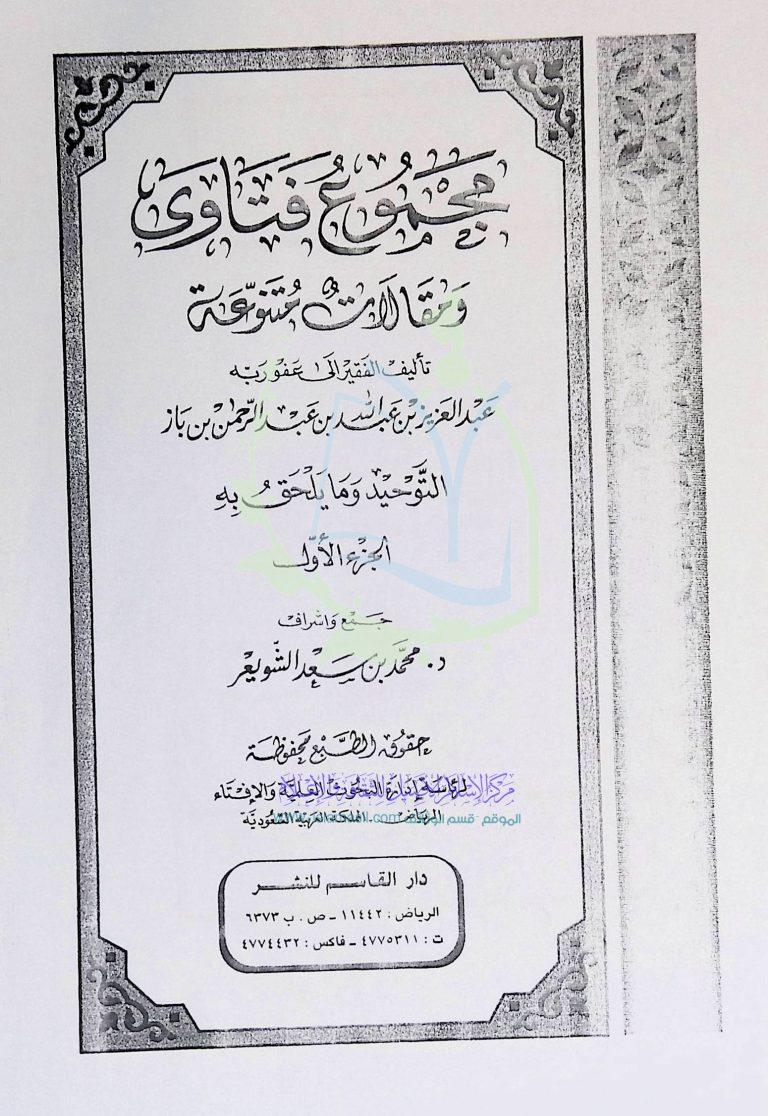 مَجْمُوعُ فَتَاوَى
وَمَقَالَاتٌ مُتَنَوِّعَة
تأليف الفقير إلى عفو ربه
عَبْد العَزيز بْن عَبد الله بن عَبد الرّحمن بْن بَاز
التَّوْحِيد وَمَا يَلْحَقُ بِهِ
الجزء الأول
جمع واشراف
د. محمّد بن سَعد الشّويعر
حقوق الطبع محفوظة
لرئاسة إدارة البحوث العلمية والإفتاء
الرياض - المملكة العربية السعودية
دار القاسم للنشر
الرياض : ١١٤٤٢ - ص . ب ٦٣٧٣
ت : ٤٧٧٥٣١١ - فاكس : ٤٧٧٤٤٣٢